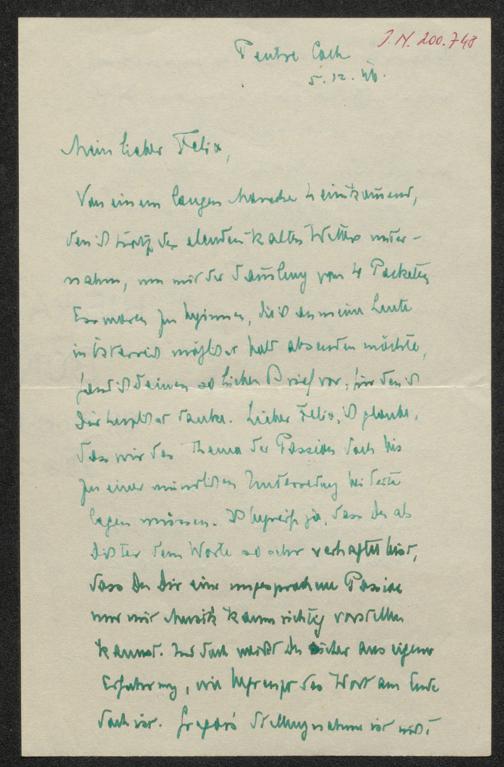 J.N. 200.748
5.12.46.
Mein lieber Felix,
Von einem langen Marsche heimkommend,
den ich trotz des elenden kalten Wetters unter-
nahm, um mit der Sammlung von 4 Packeten
Esswaren zu beginnen, die ich an meine Leute
in Österreich möglichst bald absenden möchte,
fand ich deinen so lieben Brief vor, für den ich
Dir herzlichst danke. Lieber Felix, ich glaube,
dass wir das Thema der Passion doch bis
zu einer mündlichen Unterredung bei Seite
legen müssen. Ich begreife ja, dass Du als
Dichter dem Worte so sehr verhaftet bist,
dass Du Dir eine ungesprochene Passion
nur mit Musik kaum richtig vorstellen
kannst. Und doch weisst Du sicher aus eigener
Erfahrung, wie begrenzt das Wort am Ende
doch ist. Stellungnahme ist nicht